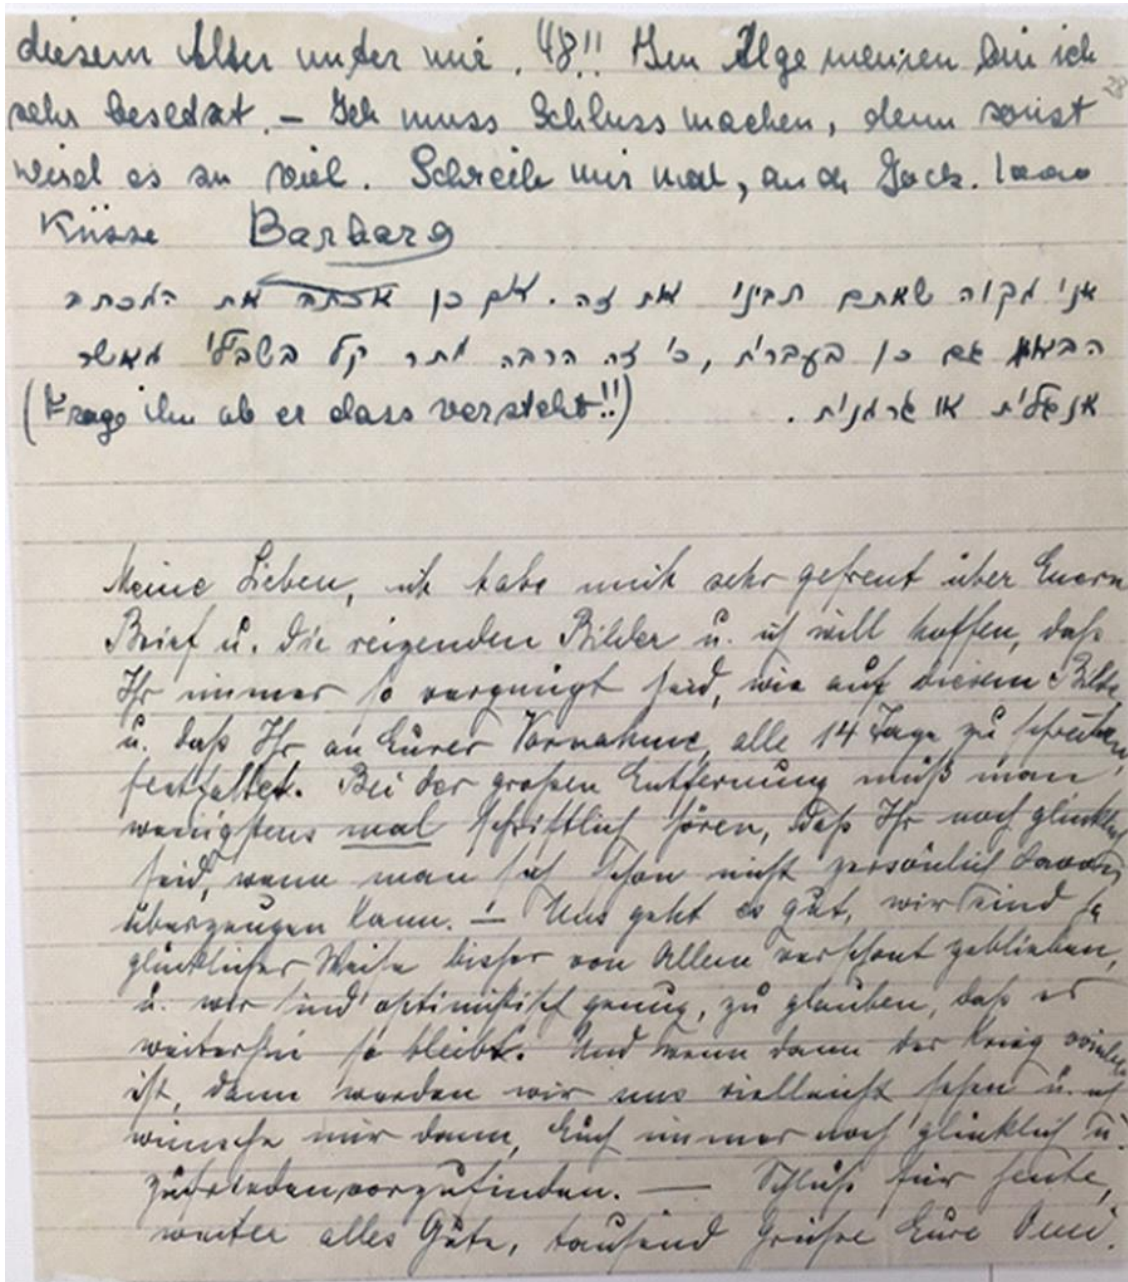 diesem Alter unter mir. 48!! Im Algemeinen bin ich
28
sehr besetzt. – Ich muss Schluss machen, denn sonst
wird es zu viel. Schreib mir mal, auch Jack. 1000
Küsse Barbara
אני מקוה שאתם תבינו את זה. אם כן אכתב את המכתב
הבא גם כן בעברית, כי זה הרבה יותר קל בשבילי מאשר
אנגלית או גרמנית.
(Frage ihn ob er dass versteht!!)
Meine Lieben, ich habe mich sehr gefreut über Euern
Brief u. die reizenden Bilder u. ich will hoffen, daß
Ihr immer so vergnügt seid, wie auf diesem Bilde
u. daß Ihr an Eurer Vornahme, alle 14 Tage zu schreiben,
festhaltet. Bei der großen Entfernung muß man
wenigstens mal schriftlich hören, daß Ihr noch glücklich
seid, wenn man sich schon nicht persönlich davon
überzeugen kann. – Uns geht es gut, wir sind ja
glücklicher Weise bisher von Allem verschont geblieben,
u. wir sind optimistisch genug, zu glauben, daß es
weiterhin so bleibt. Und wenn dann der Krieg vorbei
ist, dann werden wir uns vielleicht sehen u. ich
wünsche mir dann, Euch immer noch glücklich u.
zufrieden vorzufinden. — Schluß für heute,
weiter alles Gute, tausend Grüße Eure Omi.